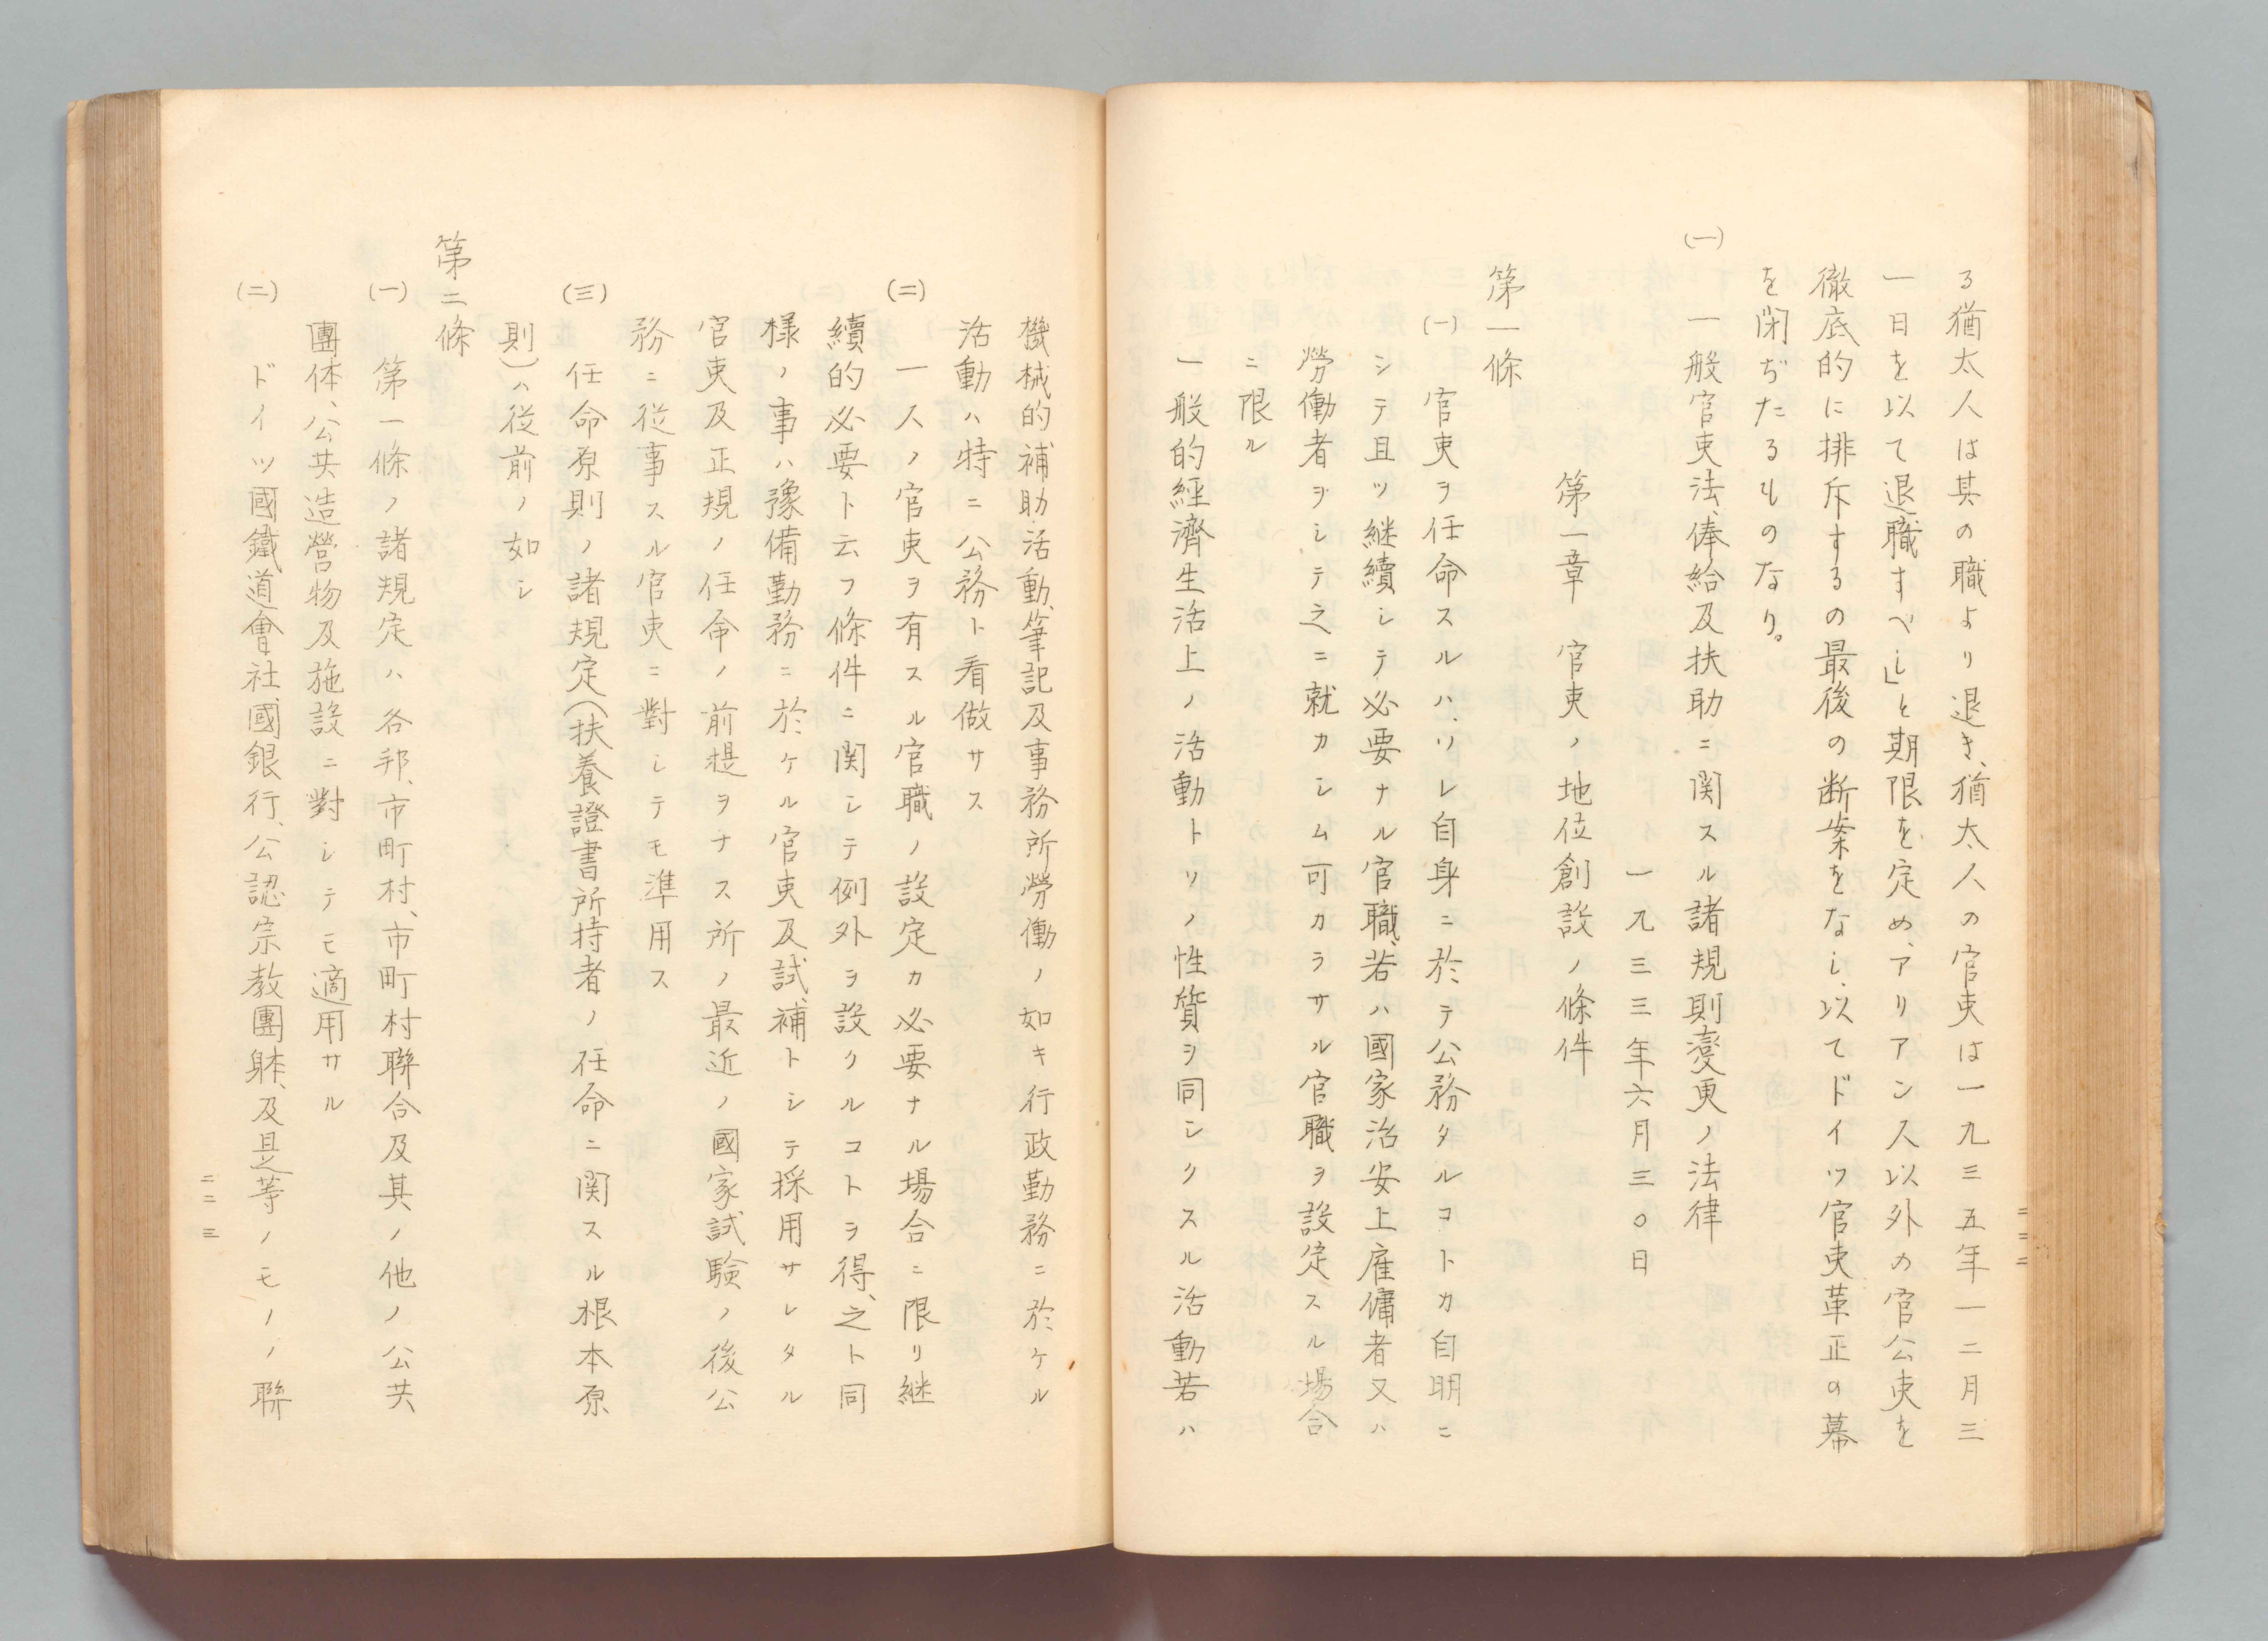 る猶太人は其の職より退き、猶太人の官吏は一九三五年一二月三
一日を以て退職すべし」と期限を定め、アリアン人以外の官公吏を
徹底的に排斥するの最後の断案をなし、以てドイツ官吏革正の幕
を閉ぢたるものなり。
(一)
一般官吏法、俸給及扶助ニ関スル諸規則変更ノ法律
一九三三年六月三〇日
第一章 官吏ノ地位創設ノ條件
第一條
(一) 官吏ヲ任命スルハ、ソレ自身ニ於テ公務タルコトカ自明ニ
シテ且ツ継續シテ必要ナル官職、若ハ國家治安上雇傭者又ハ
勞働者ヲシテ之ニ就カシム可カラサル官職ヲ設定スル場合
ニ限ル
一般的経濟生活上ノ活動トソノ性質ヲ同シクスル活動若ハ
二二二
機械的補助活動、筆記及事務所勞働ノ如キ行政勤務ニ於ケル
活動ハ特ニ公務ト看做サス
(二) 一人ノ官吏ヲ有スル官職ノ設定カ必要ナル場合ニ限リ継
續的必要ト云フ條件ニ関シテ例外ヲ設クルコトヲ得、之ト同
様ノ事ハ豫備勤務ニ於ケル官吏及試補トシテ採用サレタル
官吏及正規ノ任命ノ前提ヲナス所ノ最近ノ國家試験ノ後公
務ニ従事スル官吏ニ對シテモ準用ス
(三) 任命原則ノ諸規定(扶養證書所持者ノ任命ニ関スル根本原
則)ハ従前ノ如シ
第二條
(一) 第一條ノ諸規定ハ各邦、市町村、市町村聯合及其ノ他ノ公共
團体、公共造營物及施設ニ對シテモ適用サル
(二) ドイツ國鐵道會社、國銀行、公認宗教團躰、及是等ノモノノ聯
二二三